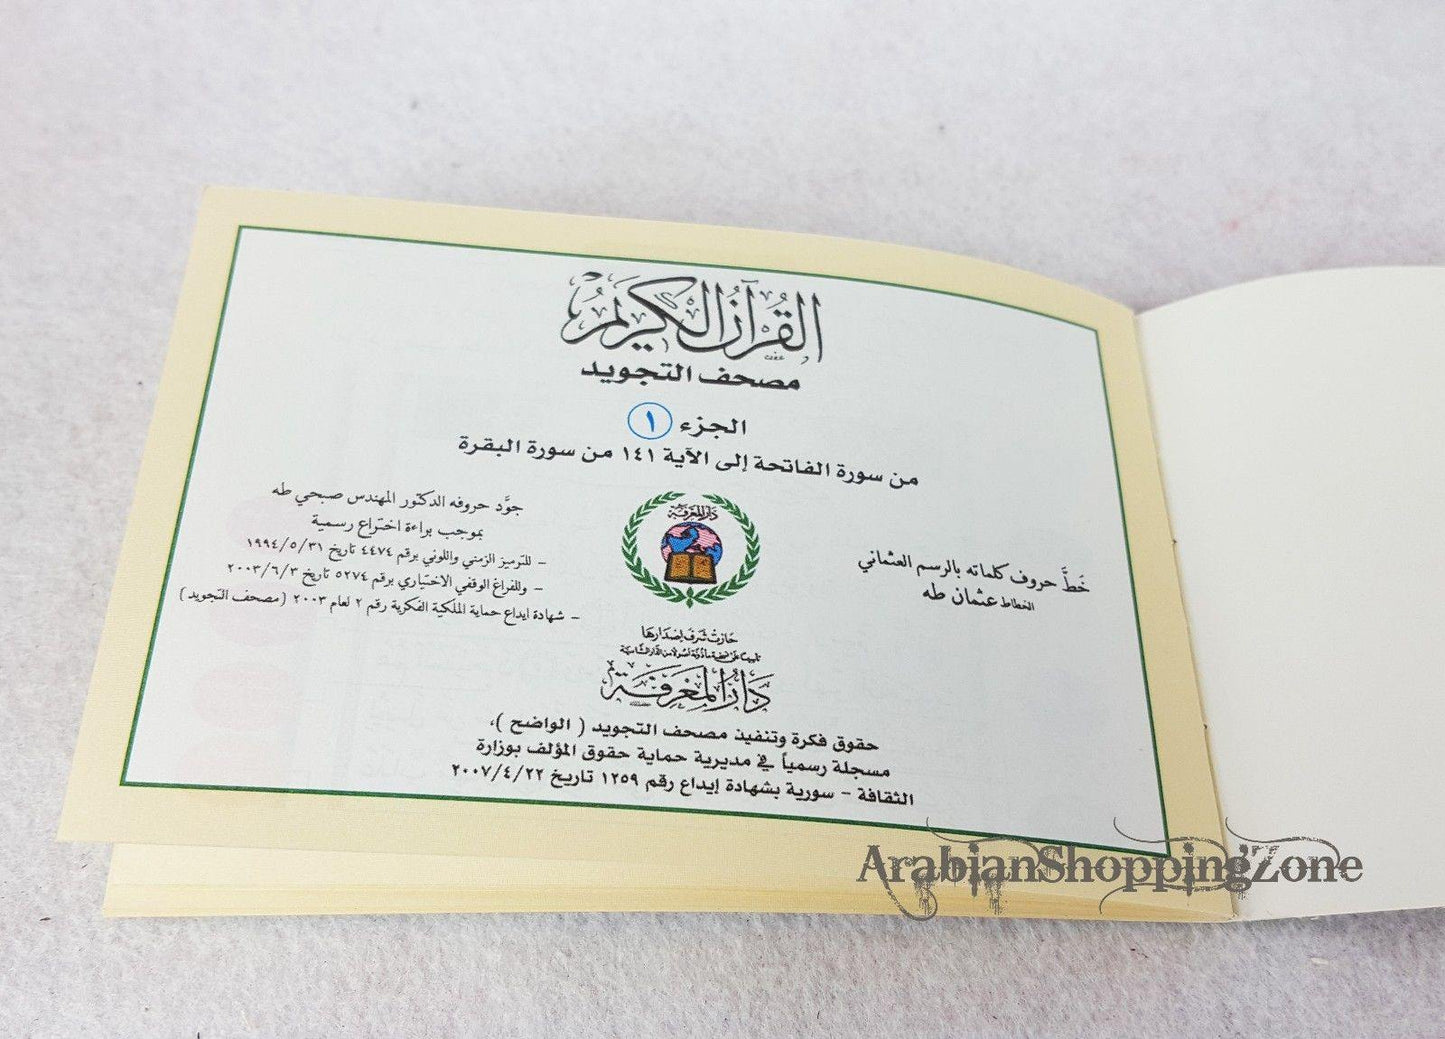 القرآن الكريم
مصحف التجويد
الجزء ١
من سورة الفاتحة إلى الآية ١٤١ من سورة البقرة
خَطَّ حروف كلماته بالرسم العثماني
الخطاط عثمان طه
جوَّد حروفه الدكتور المهندس صبحي طه
بموجب براءة اختراع رسمية
- للترميز الزمني واللوني برقم ٤٤٧٤ تاريخ ١٩٩٤/٥/٣١
- وللفراغ الوقفي الاختياري برقم ٥٢٧٤ تاريخ ٢٠٠٣/٦/٣
- شهادة ايداع حماية الملكية الفكرية رقم ٢ لعام ٢٠٠٣ (مصحف التجويد)
دار المعرفة
حازت شرف إصدارها
دار المعرفة
حقوق فكرة وتنفيذ مصحف التجويد ( الواضح )،
مسجلة رسمياً في مديرية حماية حقوق المؤلف بوزارة
الثقافة - سورية بشهادة إيداع رقم ١٢٥٩ تاريخ ٢٠٠٧/٤/٢٢
ArabianShoppingZone